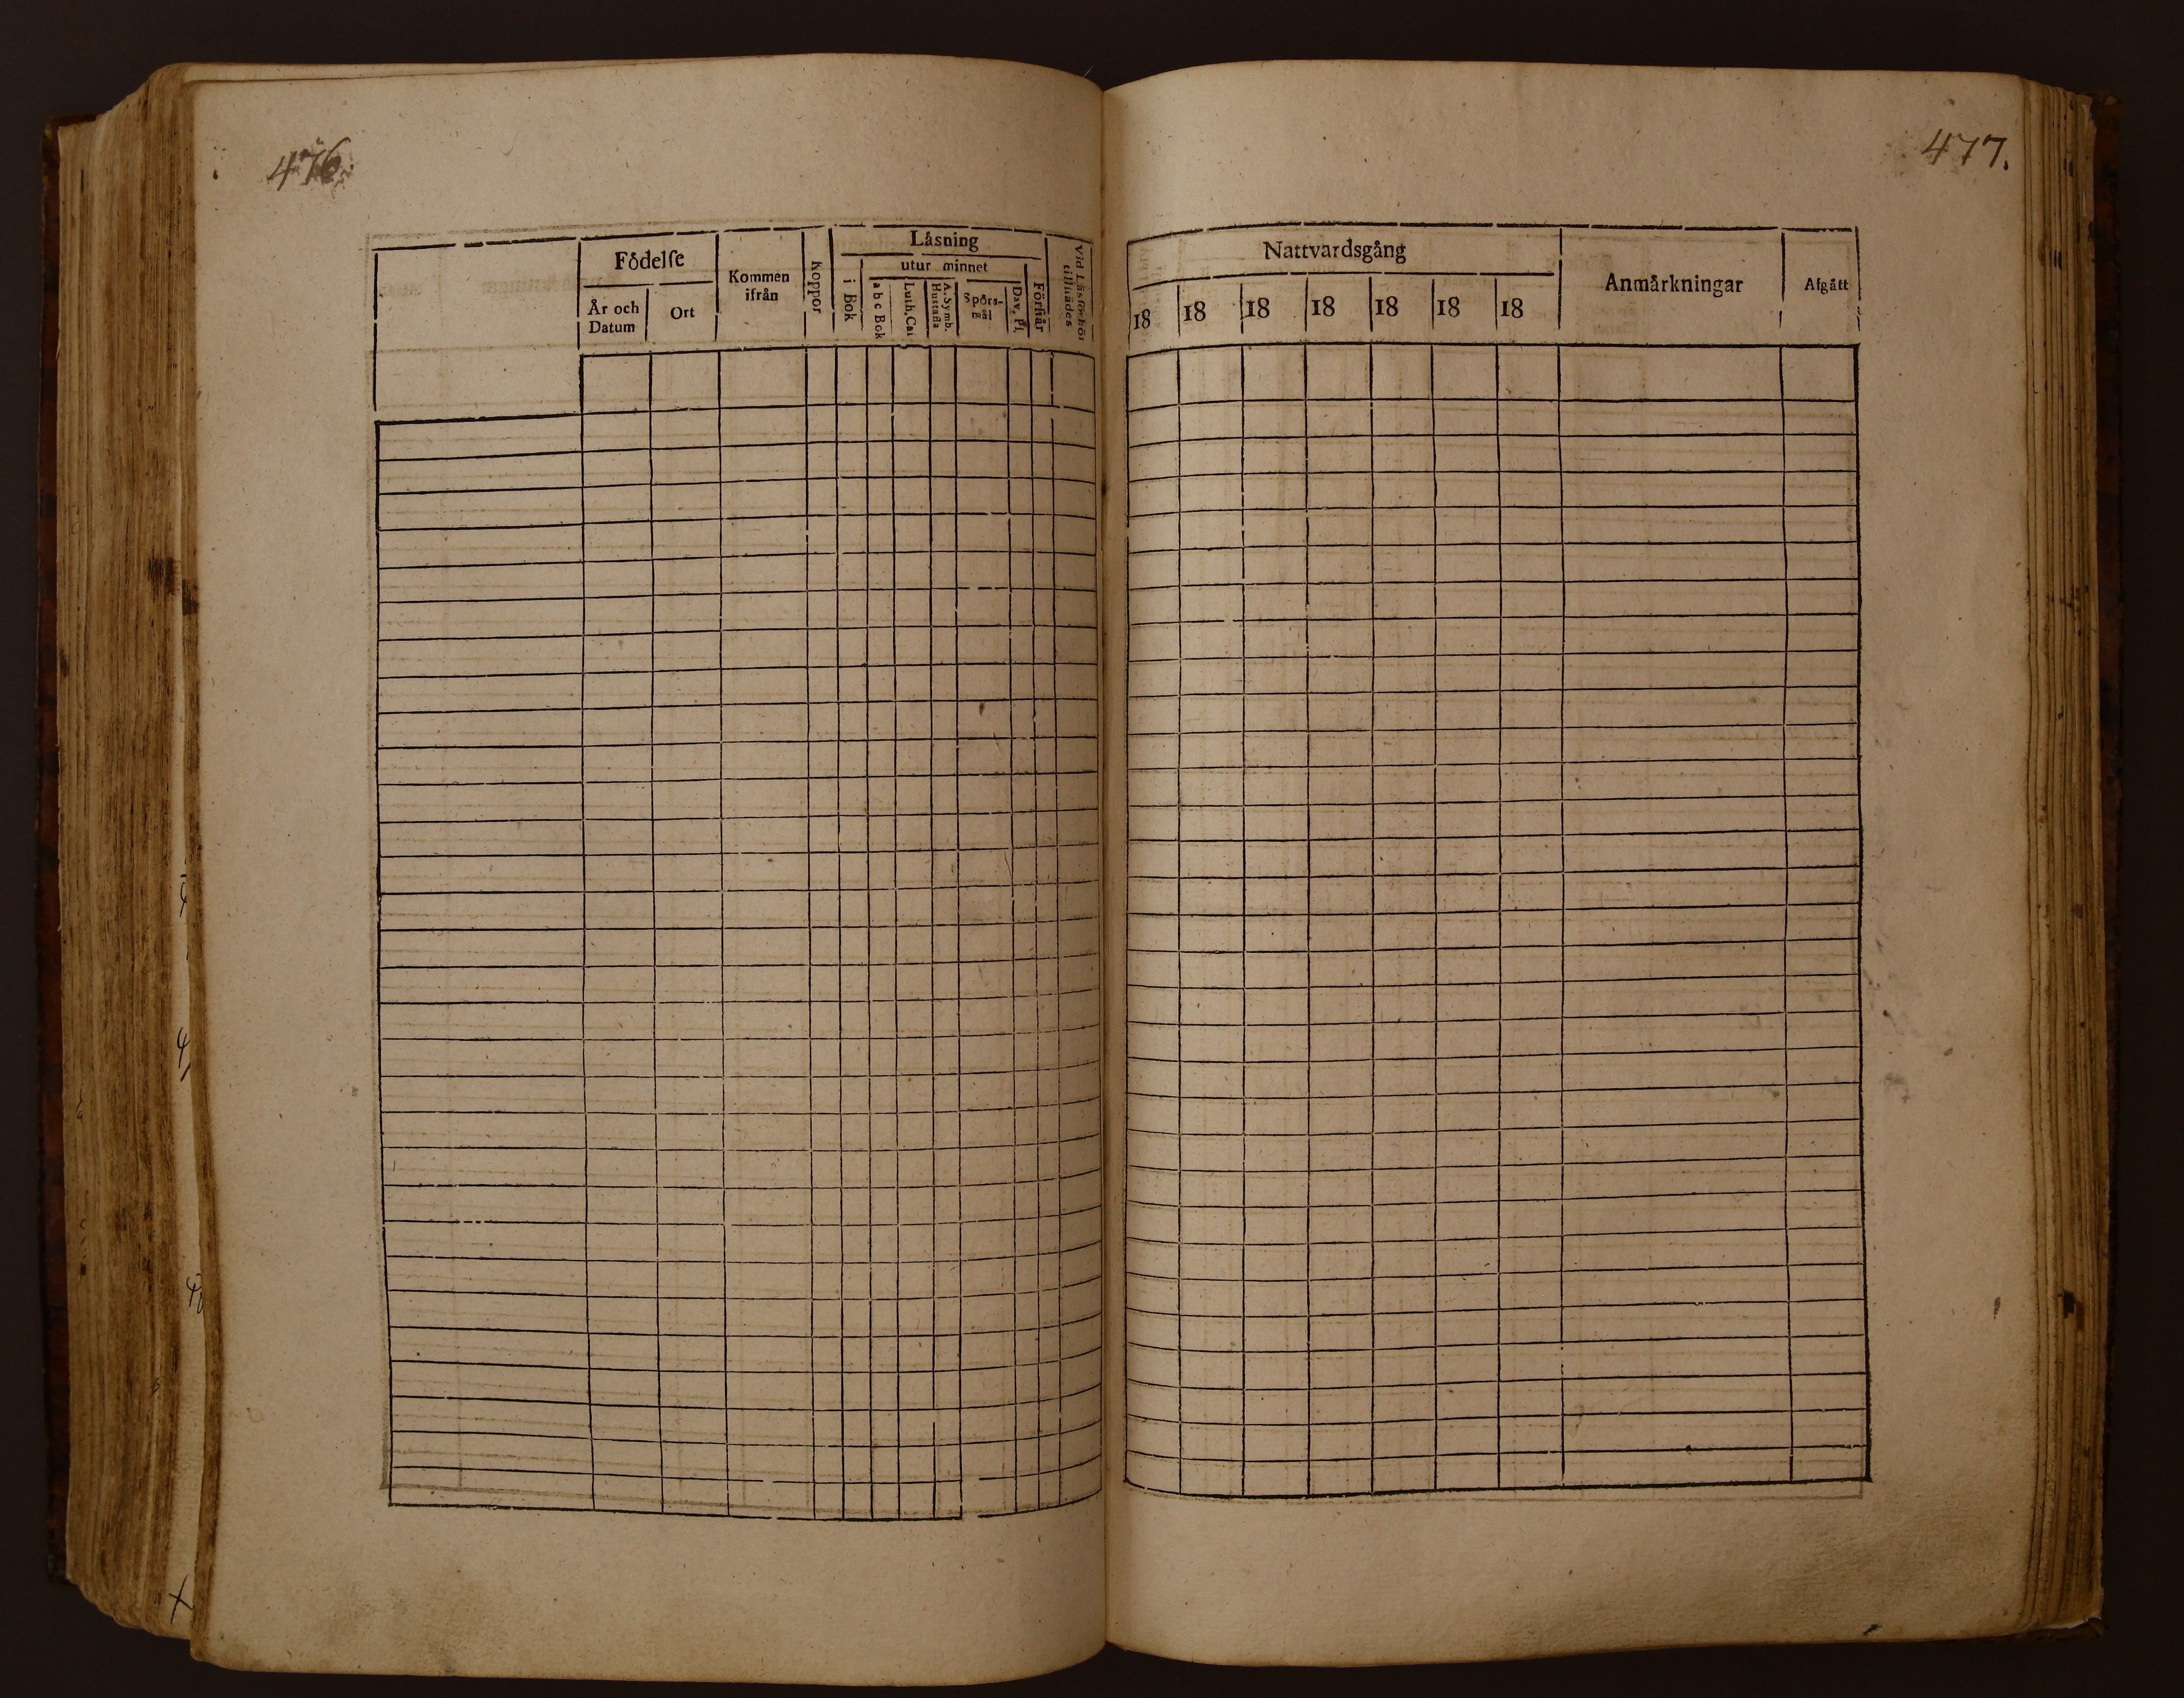 476.
Födelſe
År och
Datum
Ort
Kommen
ifrån
Koppor
Läsning
i Bok
utur minnet
a b c Bok
Luth. Cat
A. Symb.
Huſtafla
Spörs-
mål
Dav. Pſ.
Förſtår
Vid Läsförhör
tillſtädes
477.
Nattvardsgång
18 18 18 18 18 18 18
Anmärkningar
Afgått